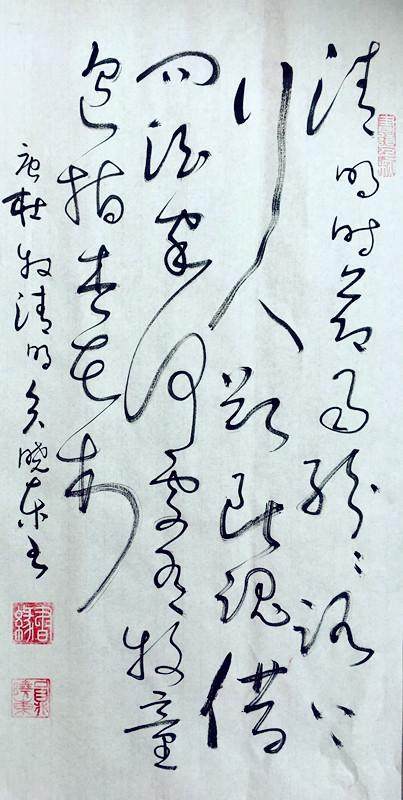 清明时节雨纷纷路上
行人欲断魂借
问酒家何处有牧童
遥指杏花村
唐杜牧清明吴晓东书